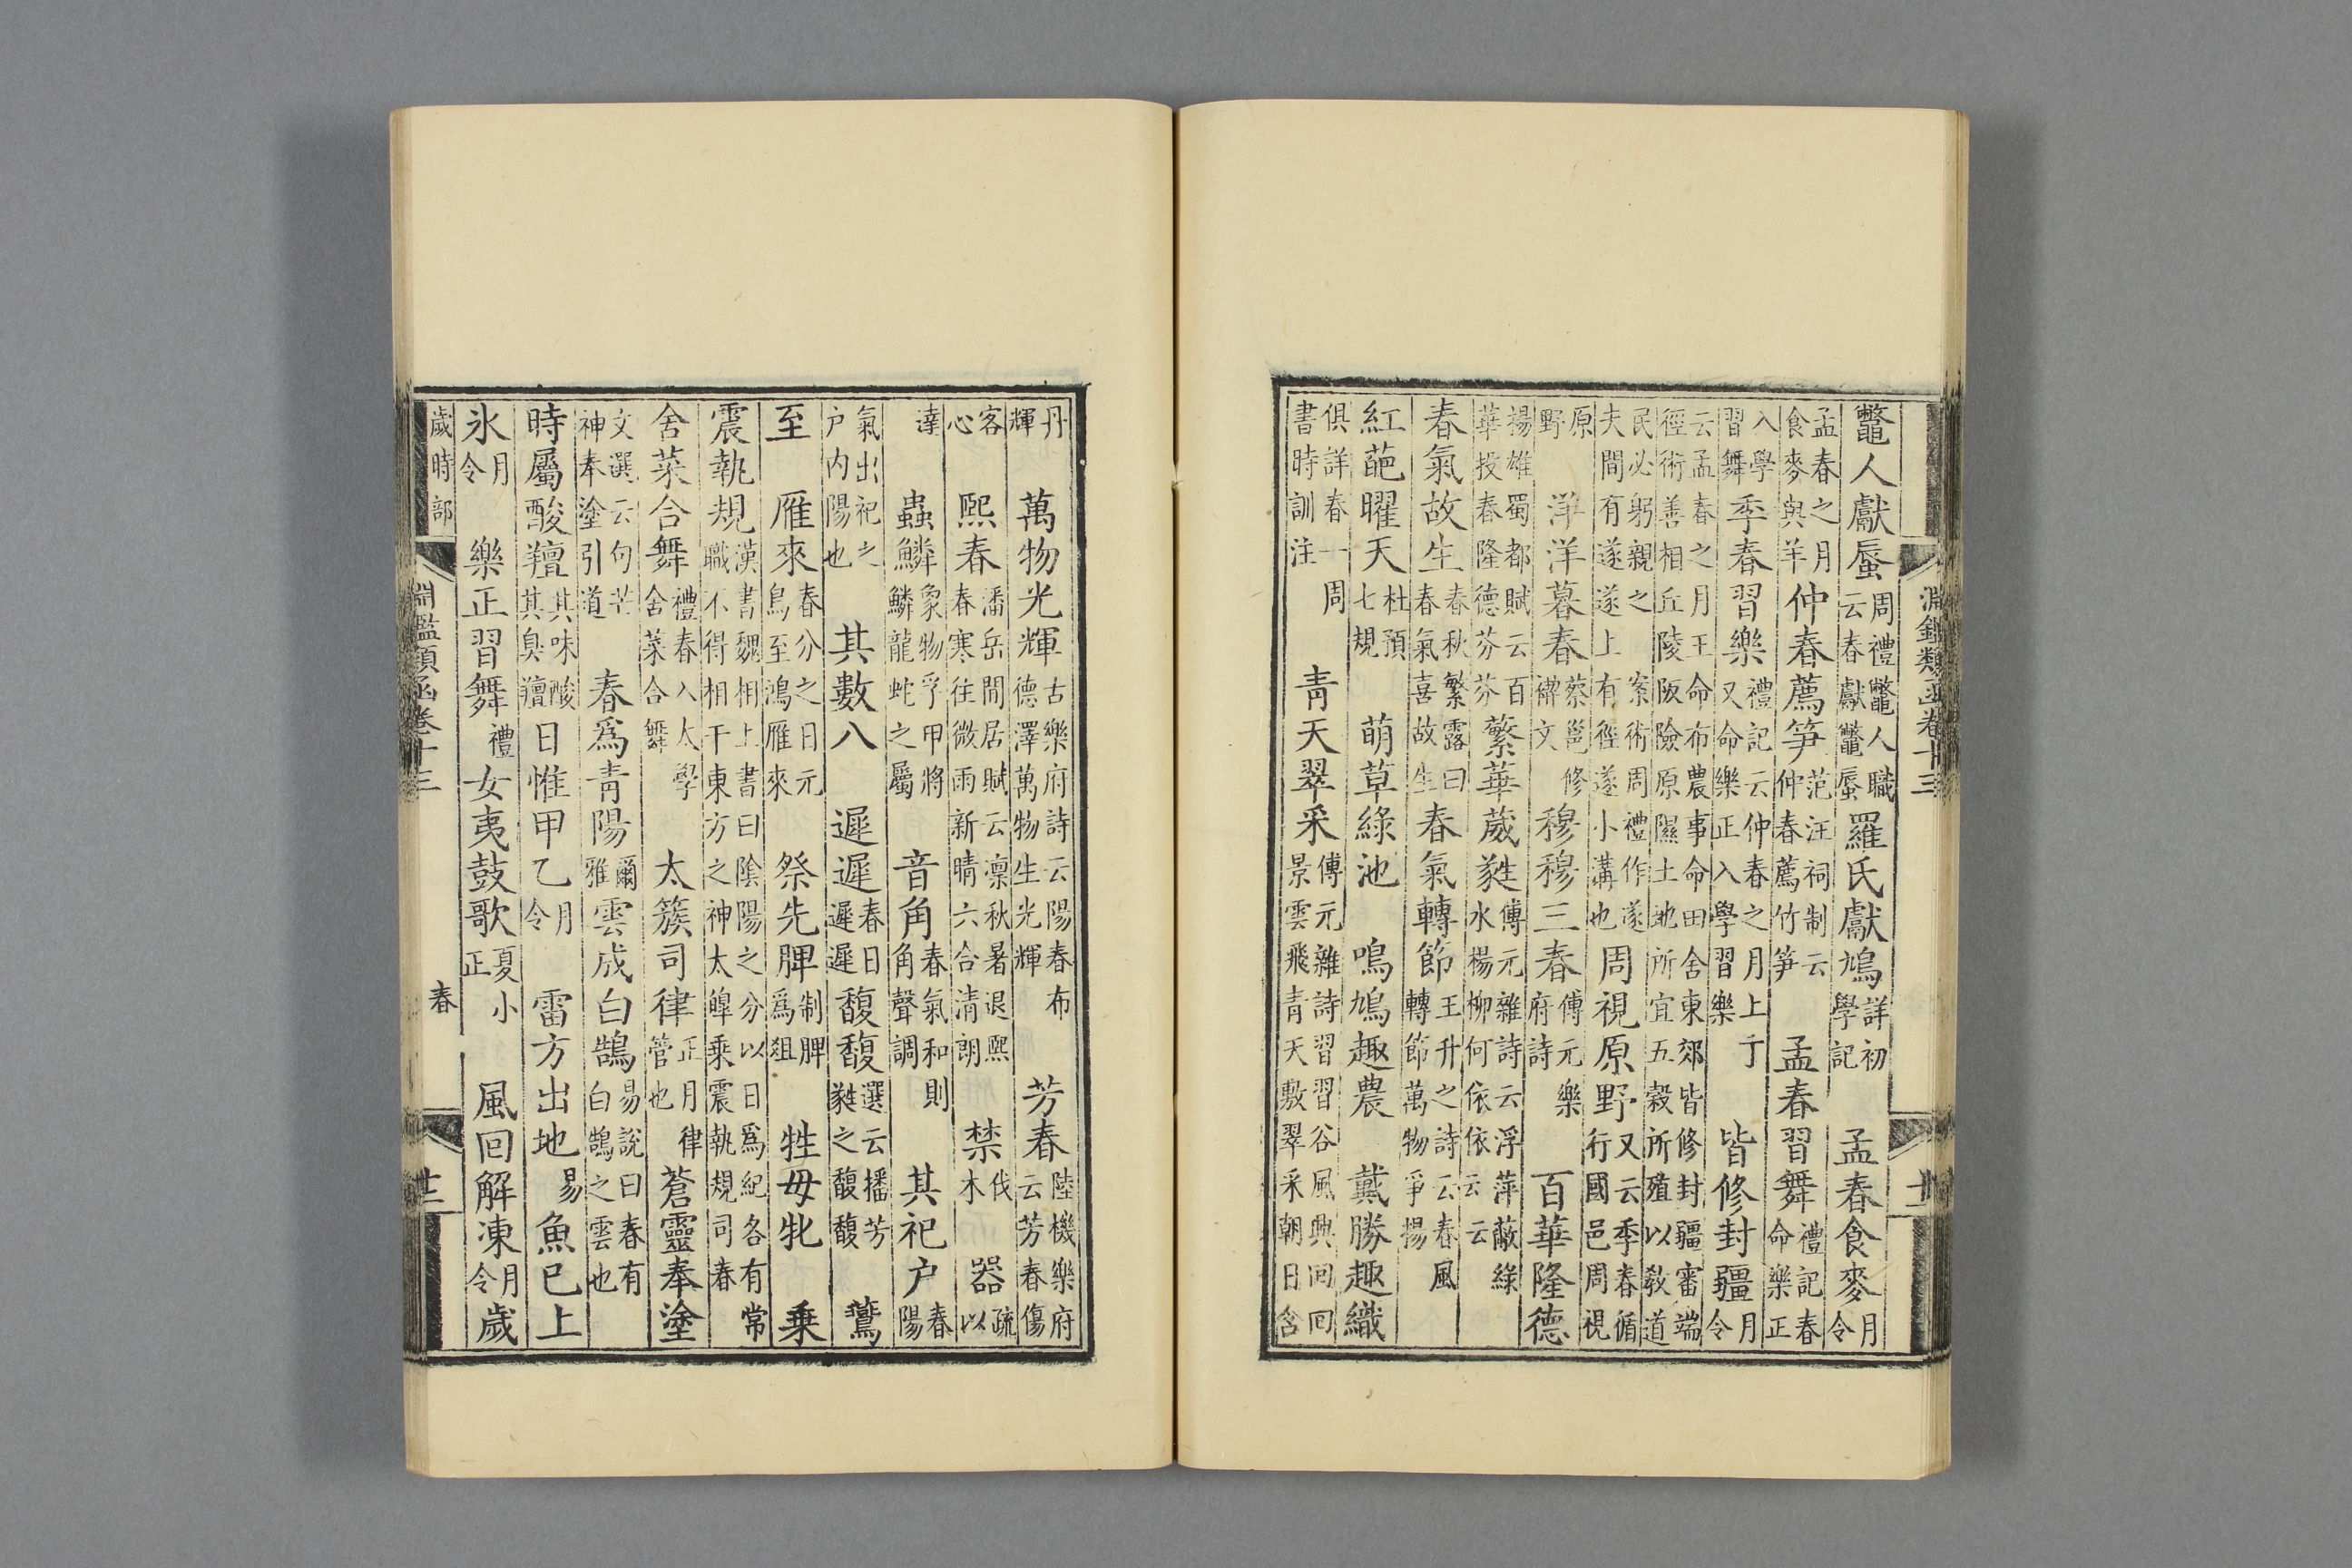 淵鑑類函卷十三
鼈人獻蜃周禮鼈人職云春獻鼈蜃羅氏獻鳩詳初學記孟春食麥月令
孟春之月食麥與羊仲春薦笋范汪祠制云仲春薦竹笋孟春習舞禮記春命樂正
入學習舞季春習樂禮記云仲春之月上丁又命樂正入學習樂皆修封疆月令
云孟春之月王命布農事命田舍東郊皆修封疆審端徑術善相丘陵阪險原隰土地所宜五穀所殖以敎道
民必躬親之案術周禮作遂夫間有遂遂上有徑遂小溝也周視原野又云季春循行國邑周視
原野洋洋暮春蔡邕修禊文穆穆三春傅元樂府詩百華隆德
揚雄蜀都賦云百華投春隆德芬芬繁華葳蕤傅元雜詩云浮萍蔽綠水楊柳何依依云云
春氣故生春秋繁露曰春氣喜故生春氣轉節王升之詩云春風轉節萬物爭揚
紅葩曜天杜預七規萌草綠池鳴鳩趣農戴勝趣織
俱詳春一周書時訓注青天翠采傅元雜詩習習谷風興回回景雲飛青天敷翠采朝日含
丹輝萬物光輝古樂府詩云陽春布德澤萬物生光輝芳春陸機樂府云芳春傷
客心熙春潘岳閒居賦云凜秋暑退熙春寒往微雨新晴六合清朗禁伐木器疏以
達蟲鱗象物孚甲將鱗龍蛇之屬音角春氣和則角聲調其祀户春陽
氣出祀之户内陽也其數八遲遲春日遲遲馥馥選云播芳蕤之馥馥鷙
至雁來春分之日元鳥至鴻雁來祭先脾制脾爲俎牲毋牝乘
震執規漢書魏相上書曰陰陽之分以日爲紀各有常職不得相干東方之神太皥乘震執規司春
舍菜合舞禮春入太學舍菜合舞太簇司律正月律管也蒼靈奉塗
文選云句芒神奉塗引道春爲青陽爾雅雲成白鵠易説曰春有白鵠之雲也
時屬酸羶其味酸其臭羶日惟甲乙月令雷方出地易魚已上
氷月令樂正習舞禮女夷鼓歌夏小正風回解凍月令歲
歲時部 淵鑑類函卷十三 春